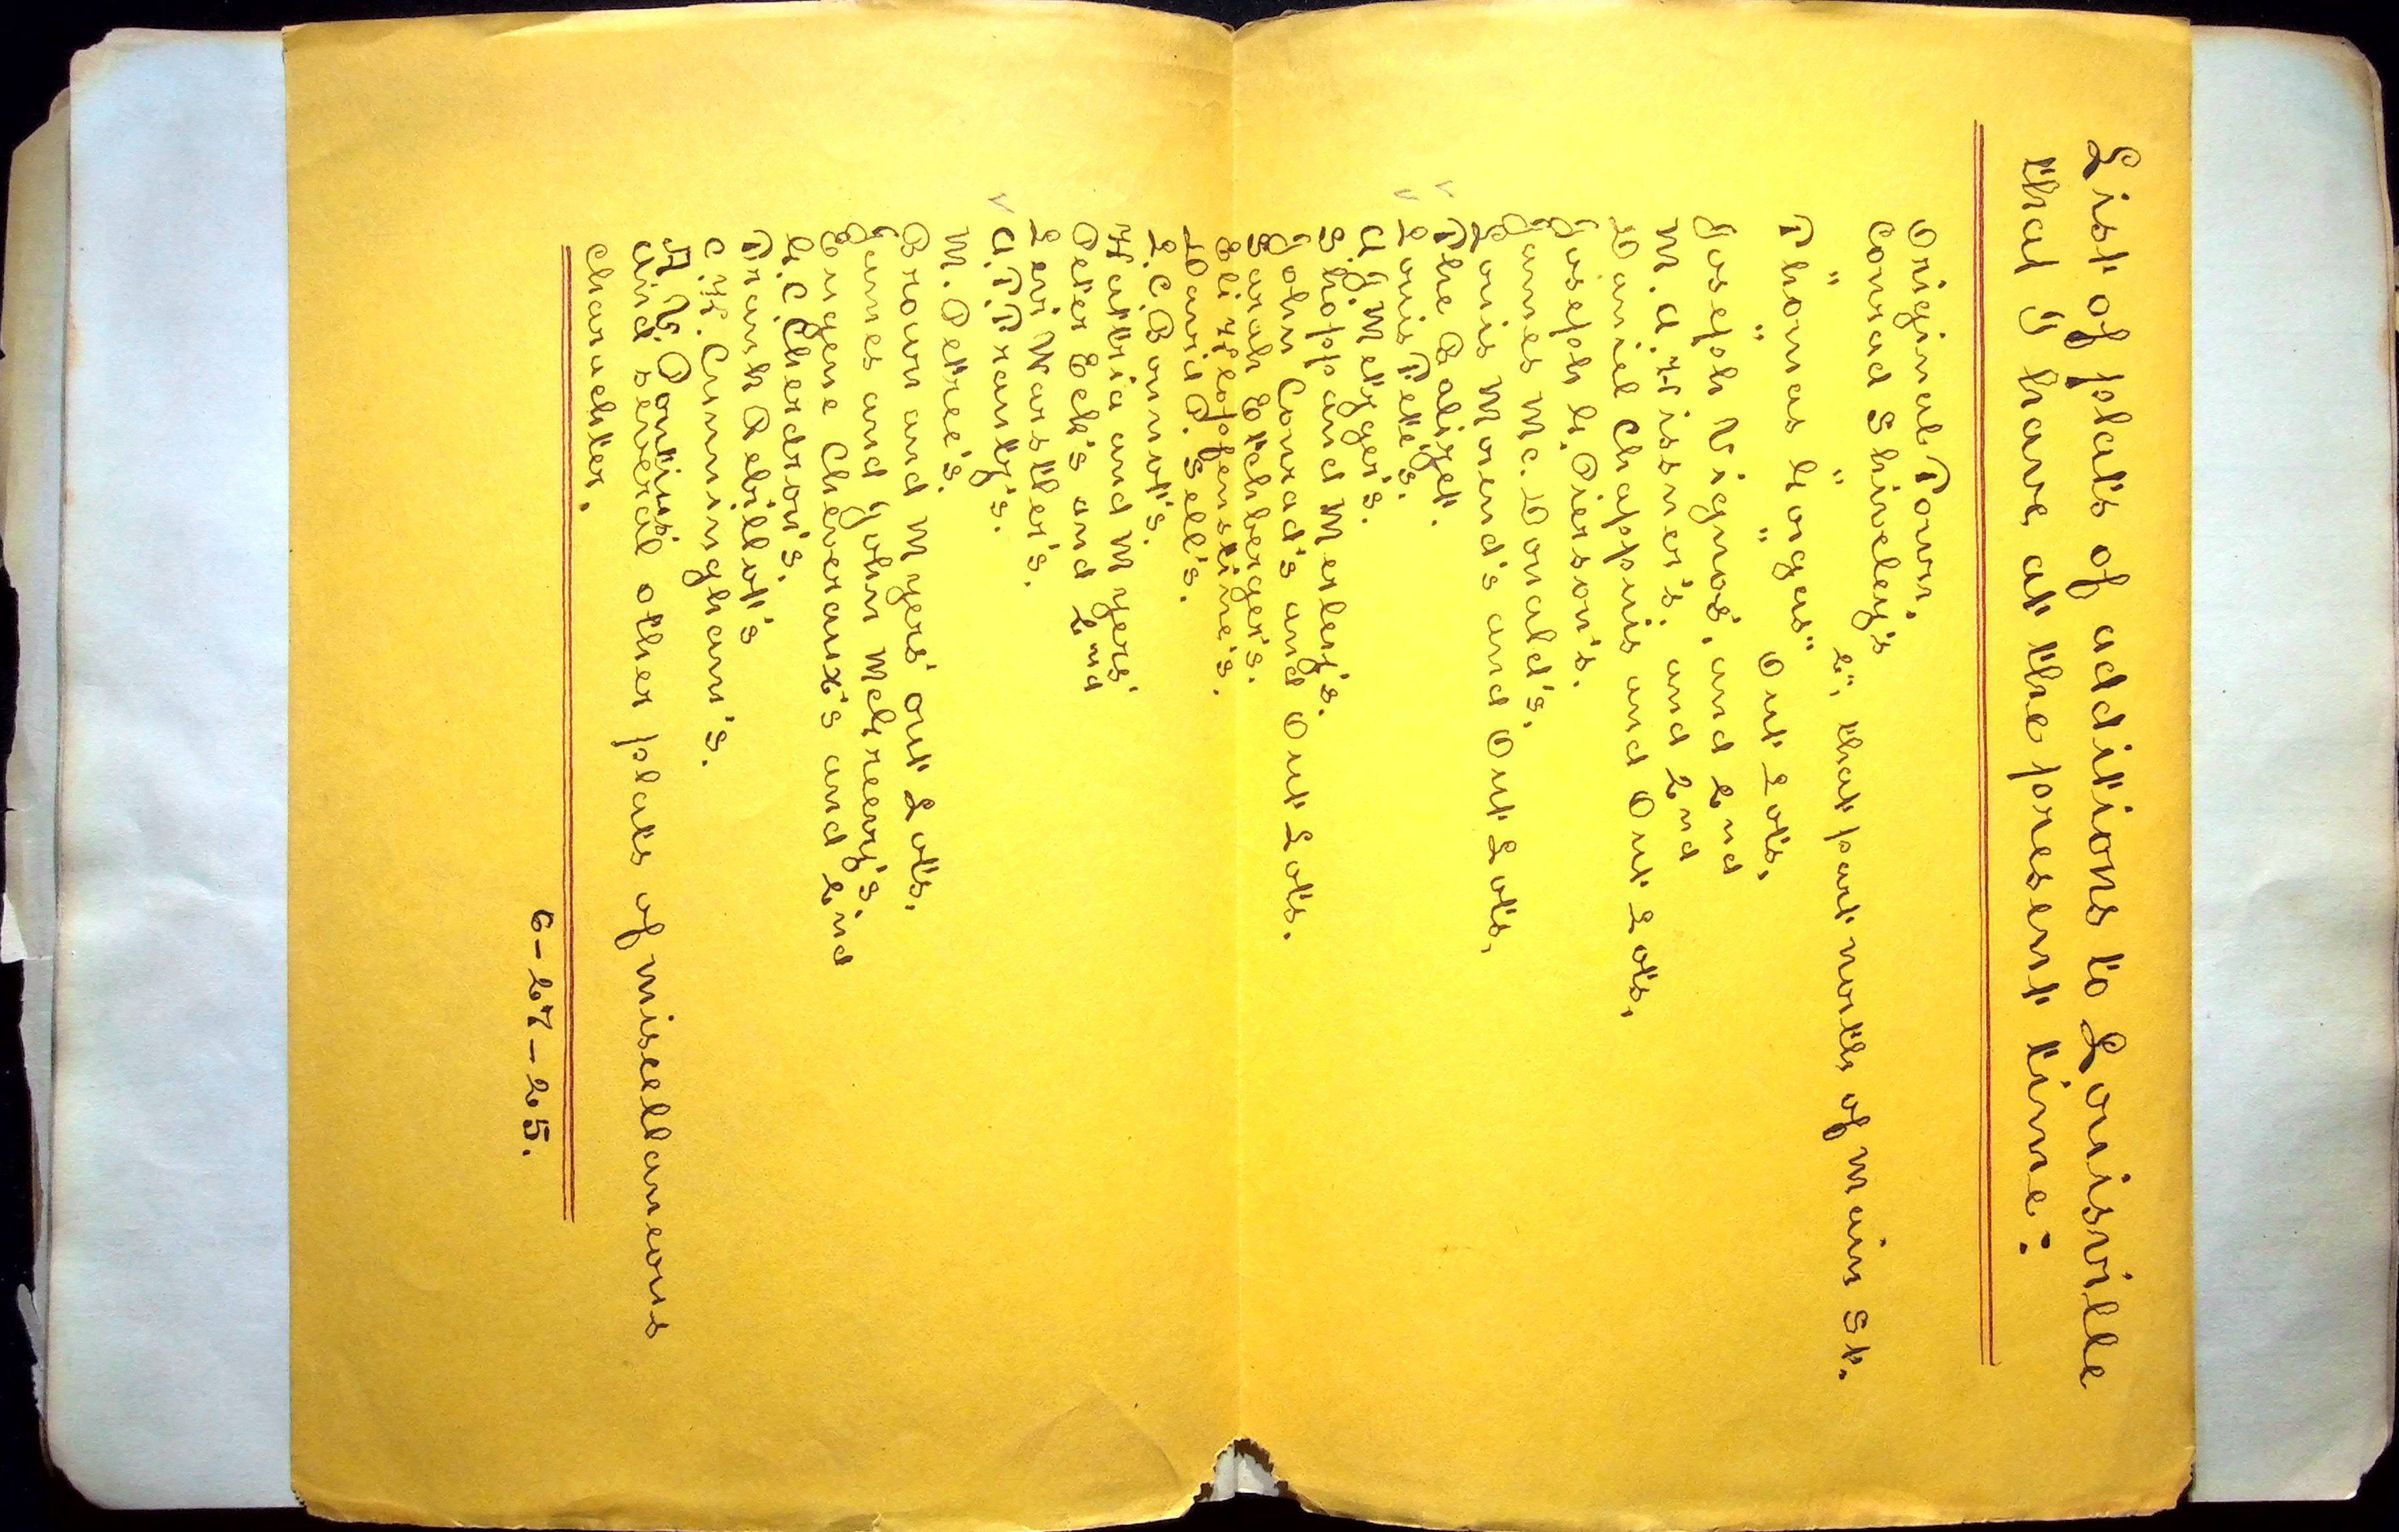 List of plats of additions to Louisville
that I have at the present time:
Original Town.
Conrad Shiveley's
" " 2", that part north of Main St.
Thomas Gorgas'
" " " Out Lots.
Joseph Vignos', and 2nd
M. A. Fissner's. and 2nd
Daniel Chappuis and Out Lots.
Joseph G. Pierson's.
James Mc.Donald's.
Louis Moind's and Out Lots.
The Balizet.
Louis Fete's.
A. J. Metzger's.
Shopp and Merley's.
John Conrad's and Out Lots.
Sarah Etchberger's.
Eli Hloppenstine's.
David P. Sell's.
L. C. Bonnot's.
Hattria and Myers'.
Peter Eck's and 2nd
Levi Warstler's.
A. T. Frantz's.
M. Petree's.
Brown and Myers' out Lots.
James and John McCreery's.
Eugene Cheveraux's and 2nd
G. C. Cherdron's.
Frank Rebillot's
C. H. Cunningham's.
A. V. Pontius'
and several other plats of miscellaneous
charachter.
6-27-25.